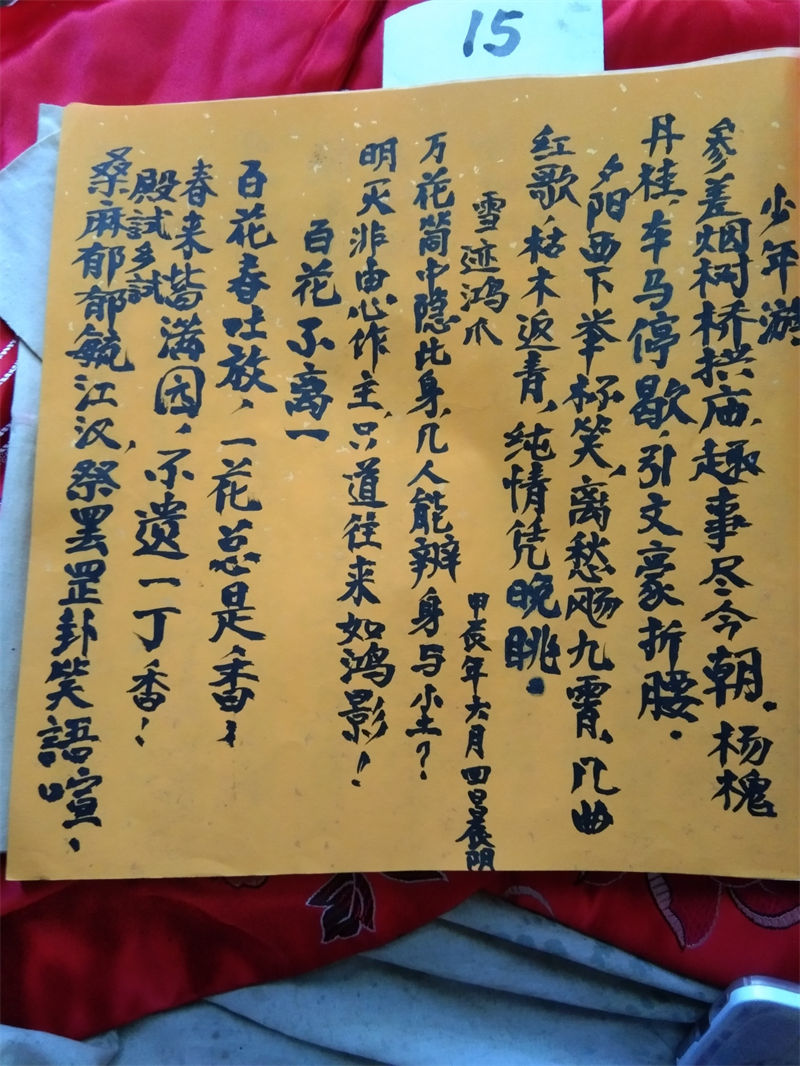 15
少年游
参差烟树桥拱庙，趣事尽今朝。杨槐
丹桂，车马停歇，引文豪折腰。
夕阳西下举杯笑，离愁飏九霄，几曲
红歌，枯木返青，纯情凭晚眺。
雪迹鸿爪
甲辰年六月四日晨阴
万花筒中隐此身，几人能辨身与尘？
明灭非由心作主，只道往来如鸿影！
百花不离一
百花春吐放，一花总是香，
春来皆满园，不遗一丁香！
殿试乡试
桑麻郁郁毓江汉，祭罢罡卦笑語喧、